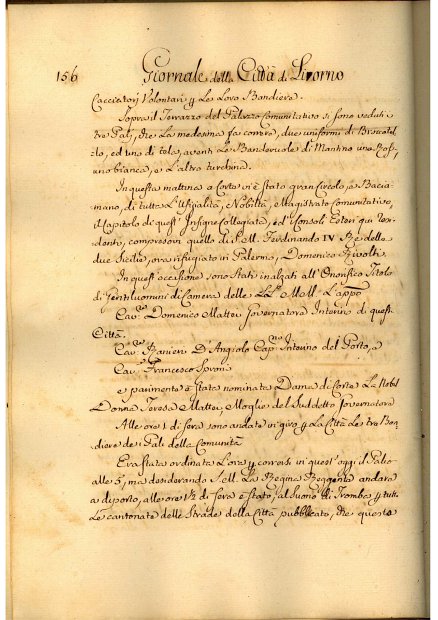 156 Giornale della Città di Livorno
Cacciatori Volontari p Le Loro Bandiere.
Sopra il Terrazzo del Palazzo Comunitativo si sono veduti i
tre Palj, che La medesima fa correre, due uniformi di Broccatel-
lo, ed uno di tela, aventi Le Banderuole di Mantino una Rossa,
uno bianca, e L'altra turchina.
In questa mattina a Corte vi è stato gran Circolo, e Bacia-
mano, di tutta L'Ufizialità, Nobiltà, e Magistrato Comunitativo,
il Capitolo di quest' Insigne Collegiata, e d' Consoli Esteri qui Resi-
denti, compresovi quello di S. M. Ferdinando IV Re delle
due Sicilie, ora rifugiato in Palermo, Domenico Rivolti.
In quest' occasione sono stati inalzati all' Onorifico Titolo
di Gentiluomini di Camera delle LL. MM. L'app.o
Cav.re Domenico Mattei Governatore Interino di questa
Città.
Cav.re Ranieri D'Angiolo Cap.no Interino del Porto, e
Cav.re Francesco Sproni
e parimente è stata nominata Dama di Corte La Nobil
Donna Teresa Mattei, Moglie del Suddetto Governatore
Alle ore 1 di sera sono andate in giro p La Città Le tre Ban-
diere de' Pali della Comunità
Era stata ordinata L'ora p corrersi in quest' oggi il Palio
alle 5, ma desiderando S. M. La Regina Reggente andare
a diporto, alle ore 1½ di sera è stato, al suono di Trombe p tutte
Le cantonate delle Strade della Città pubblicato, che questo